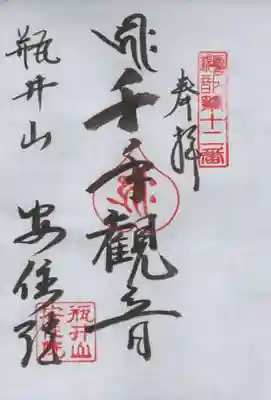 十二番
奉拝
千手觀音
瓶井山 安住院
瓶井山
安住院